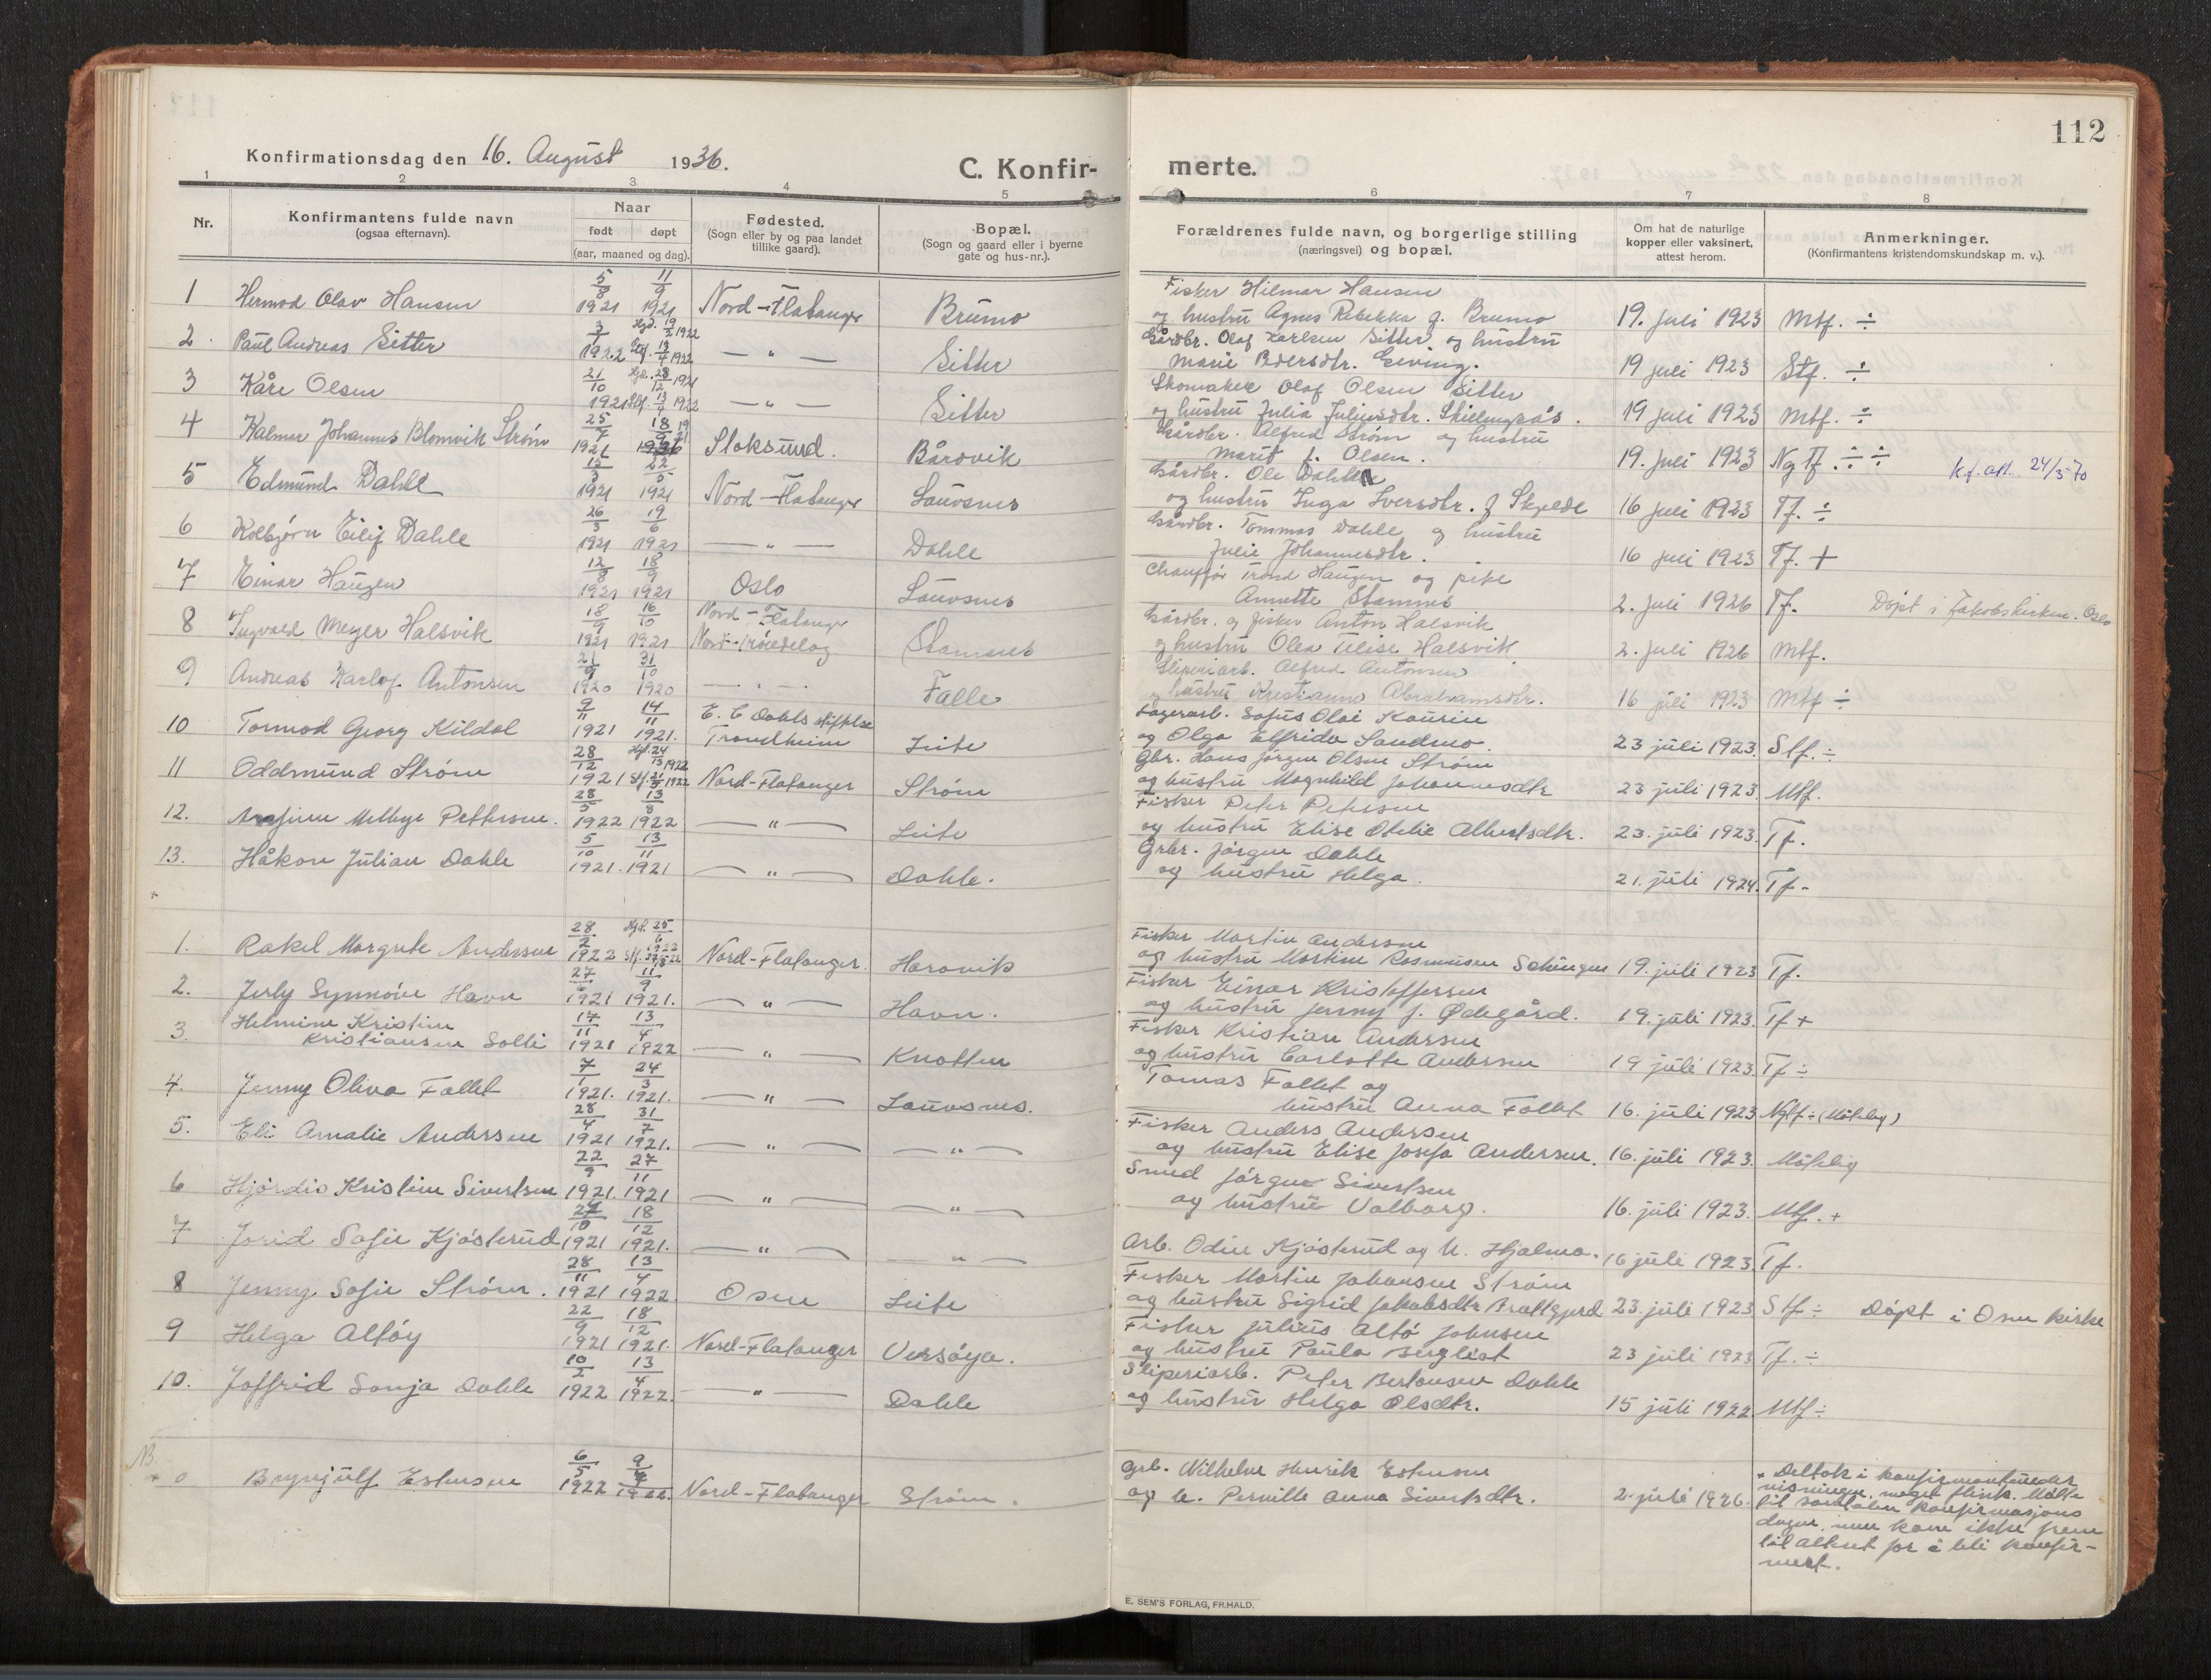 112
Konfirmationsdag den 16. August 1936.
C. Konfir-
merte.
1 2 3 4 5 6 7 8
Nr.
Konfirmantens fulde navn
(ogsaa efternavn).
Naar
født døpt
(aar, maaned og dag).
Fødested.
(Sogn eller by og paa landet
tillike gaard).
Bopæl.
(Sogn og gaard eller i byerne
gate og hus-nr.).
Forældrenes fulde navn, og borgerlige stilling
(næringsvei) og bopæl.
Om hat de naturlige
kopper eller vaksinert,
attest herom.
Anmerkninger.
(Konfirmantens kristendomskundskap m. v.).
1 Hermod Olav Hansen 5/8 1921 11/9 1921 Nord-Flatanger Brumo
Fisker Hilmar Hansen
og hustru Agnes Rebekka f. Brumo 19. juli 1923 Mtf. ÷
2. Paul Andreas Sitter 3/7 1922 Hjd. 19/2 1922 Stf. 13/4 1922 — " — Sitter
Gårdbr. Olaf Karlsen Sitter og hustru
Marie Pedersdtr. Eeving. 19 juli 1923 Stf. ÷
3 Kåre Olsen 21/10 1921 Hjd. 28/12 1921 Stf. 13/4 1922 — " — Sitter
Skomaker Olaf Olsen Sitter
og hustru Julia Juliusdtr. Skillingsås. 19 juli 1923 Mtf. ÷
4 Kalmar Johannes Blomvik Strøm 25/7 1921 18/9 1921 Stoksund. Bårdvik
Gårdbr. Alfred Strøm og hustru
Marit f. Olsen. 19. juli 1923 Ng Tf. ÷ ÷ k.f. att. 24/3-70
5 Edmund Dahle 13/3 1921 22/5 1921 Nord-Flatanger Lauvsnes
Gårdbr. Ole Dahle
og hustru Inga Iversdtr. f Skjelde 16 juli 1923 Tf. ÷
6 Kolbjørn Eilif Dahle 26/3 1921 19/6 1921 — " — Dahle
Gårdbr. Tommas Dahle og hustru
Julie Johannesdtr. 16 juli 1923 Tf. +
7 Einar Haugen 12/8 1921 18/9 1921 Oslo Lauvsnes
Chauffør Trond Haugen og pike
Annette Stamnes 2. juli 1926 Tf. Døpt i Jakobskirken. Oslo
8 Ingvald Meyer Halsvik 18/9 1921 16/10 1921 Nord-Flatanger
Nord-Trøndelag Stamnes
Gårdbr. og fisker Anton Halsvik
og hustru Olea Elise Halsvik 2. juli 1926 Mtf.
9 Andreas Karlof Antonsen 21/9 1920 31/10 1920 — " — Falle
Sliperiarb. Alfred Antonsen
og hustru Kristianne Abrahamsdtr. 16 juli 1923 Mtf ÷
10 Tormod Georg Kildal 9/11 1921 14/11 1921. E. C Dahls stiftelse
Trondheim Leite
Lagerarb. Sofus Olai Kaurin
og Olga Elfrida Sandmo. 23 juli 1923. Stf. ÷
11 Oddmund Strøm 28/12 1921 Nord-Flatanger Strøm
Gbr. Hans Jørgen Olsen Strøm
og hustru Magnhild Johannesdtr 23 juli 1923. Mtf.
12. Arnfinn Melbye Pettersen. 28/5 1922 13/8 1922 — " — Leite
Fisker Peter Petersen
og hustru Elise Otelie Albertsdtr. 23. juli 1923. Tf.
13. Håkon Julian Dahle 5/10 1921. 13/11 1921 — " — Dahle.
Grbr. Jørgen Dahle
og hustru Helga. 21. juli 1924. Tf-
1. Rakel Margrete Andersen 28/2 1922 Hjd. 25/6 1922 Nord-Flatanger. Haravik
Fisker Martin Andersen
og hustru Martine Rasmussen 19. juli 1923 Tf.
2. Jerly Synnøve Havn 1921 11/9 1921. — " — Havn.
Fisker Einar Kristoffersen
og hustru Jenny f. Ødegård. 19. juli 1923. Tf +
3. Helmine Kristine
Kristiansen Solli 17/11 1921 13/4 1922 — " — Knotten
Fisker Kristian Andersen
og hustru Carlotte Andersen 19 juli 1923. Tf ÷
4. Jenny Oliva Fallet 7/1 1921. 24/3 1921. — " — Lauvsnes.
Tomas Fallet og
hustru Anna Fallet 16. juli 1923 Ngtf ÷ (Måtelig)
5. Eli Amalie Andersen 28/4 1921 31/7 1921. — " — — " —
Fisker Anders Andersen
og hustru Elise Josefa Andersen. 16. juli 1923. Måtelig
6 Hjørdis Kristine Sivertsen 22/9 1921. 27/11 1921 — " — — " —
Smed Jørgen Sivertsen
og hustru Valborg. 16. juli 1923. Mtf. +
7 Jorid Sofie Kjøsterud 27/10 1921 18/12 1921. — " — — " —
Arb. Odin Kjøsterud og h. Hjalma. 16 juli 1923. Tf.
8 Jenny Sofie Strøm. 28/11 1921 13/4 1922 Osen Leite
Fisker Martin Johansen Strøm
og hustru Sigrid Jakobsdtr. Brattgjerd 23. juli 1923 Stf ÷ Døpt i Osen kirke
9 Helga Altøy 22/9 1921 18/12 1921. Nord-Flatanger Uersøya.
Fisker Julius Altø Johnsen
og hustru Paula Bergliot 23 juli 1923 Tf. ÷
10. Joffrid Sonja Dahle 10/2 1922 13/4 1922. — " — Dahle
Sliperiarb. Peter Berntsen Dahle
og hustru Helga Olsdtr. 15 juli 1922 Mtf ÷
NB.
+ 0 Brynjulf Estensen 6/5 1922 9/7 1922. Nord-Flatanger Strøm.
Grb. Wilhelm Henrik Estensen
og h. Pernille Anna Sivertsdtr. 2. juli 1926.
+ Deltok i konfirmantunder
visningen, meget flink. Møtte
til samtalen konfirmasjons
dagen, men kom ikke frem
til alteret for å bli konfir-
mert.
E. SEM'S FORLAG, FR.HALD.